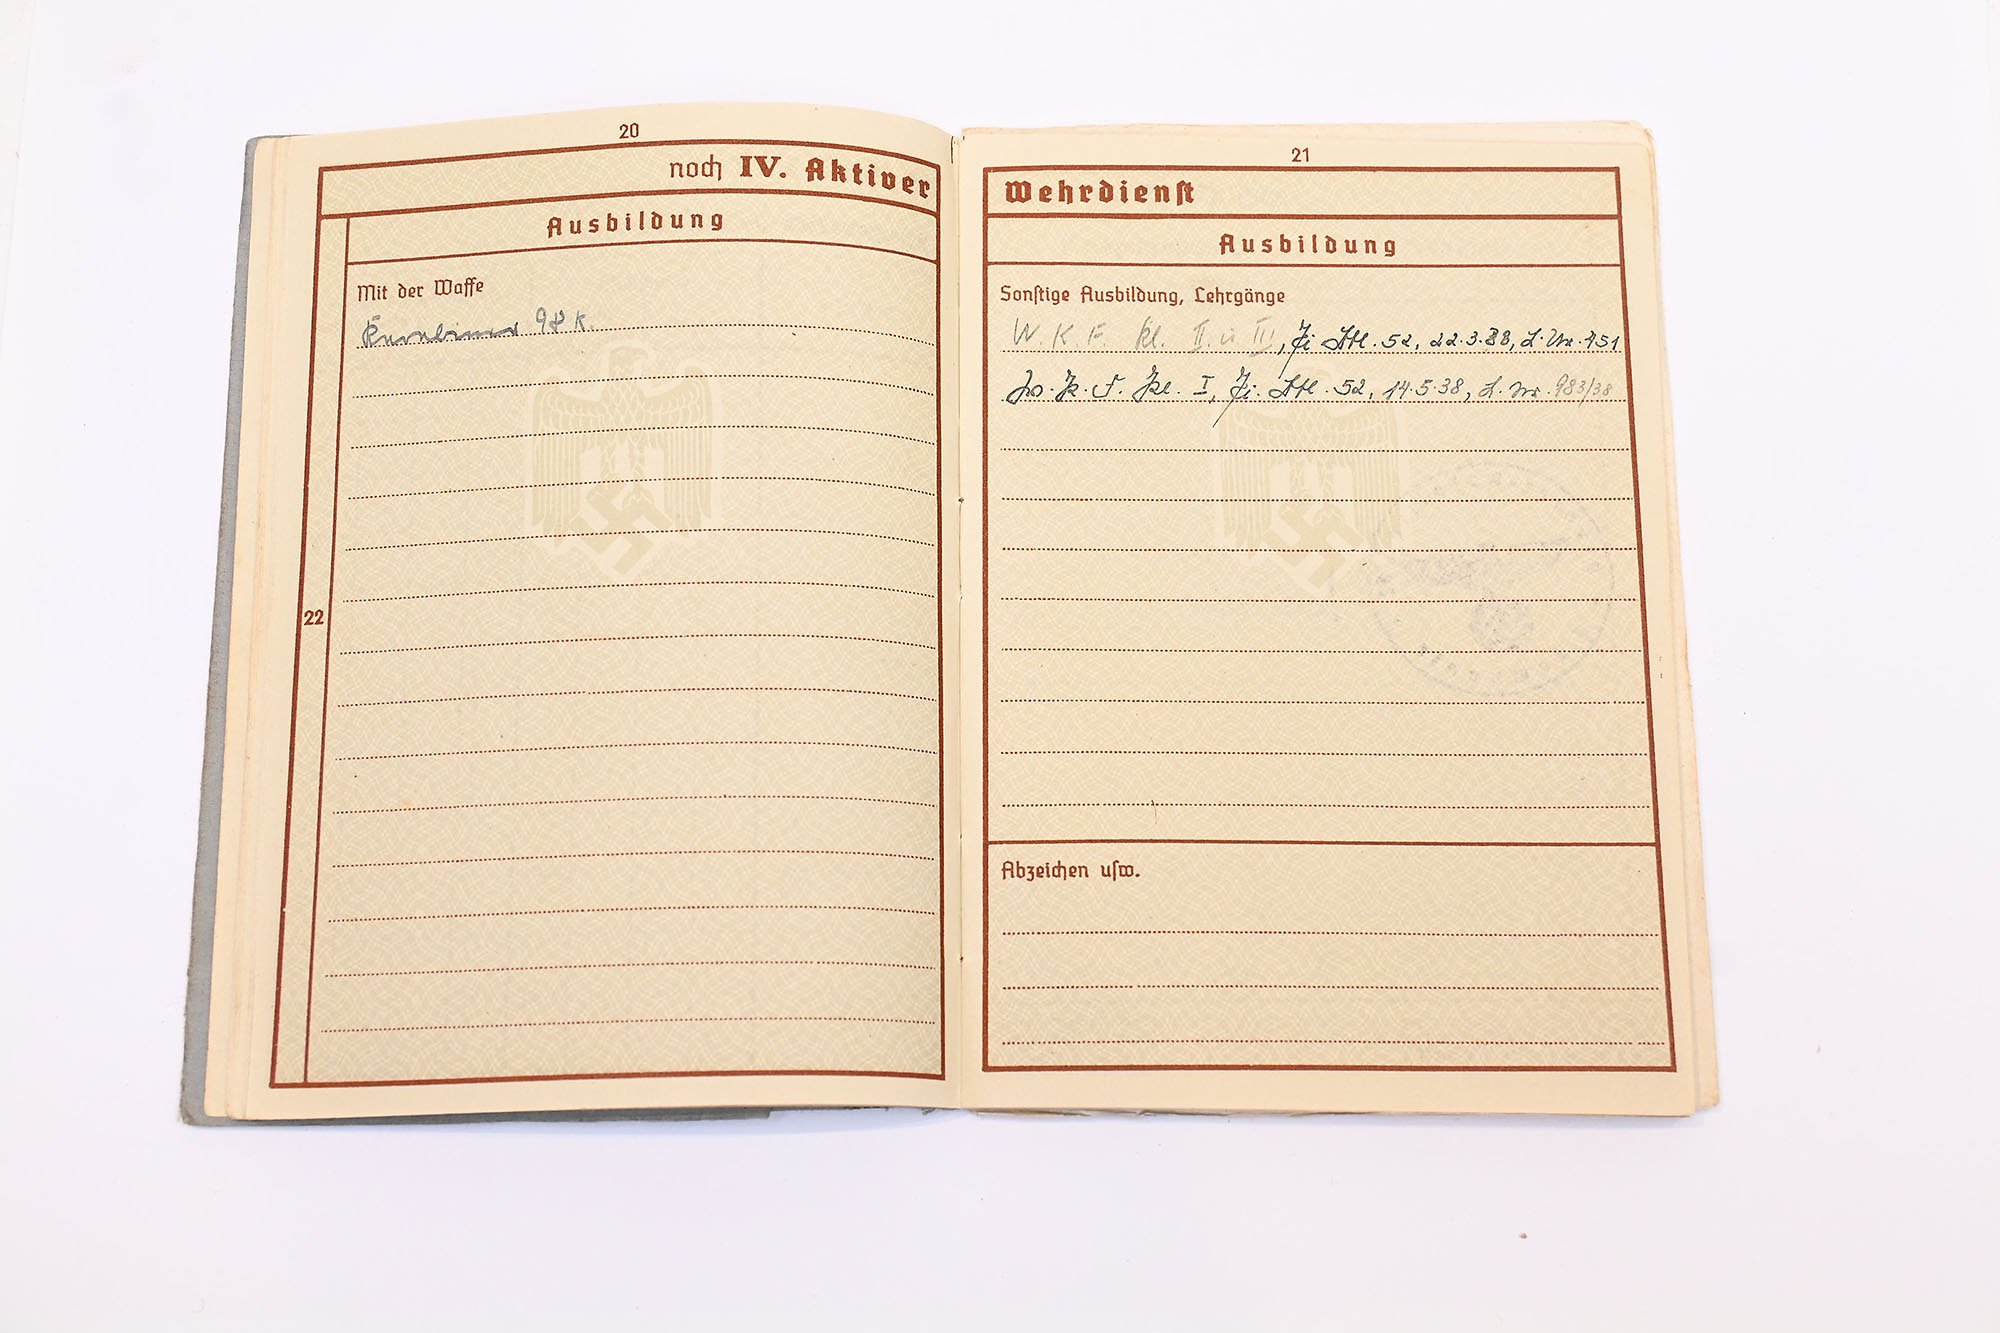 20
noch IV. Aktiver
Ausbildung
22
Mit der Waffe
Karabiner 98 K.
21
Wehrdienst
Ausbildung
Sonstige Ausbildung, Lehrgänge
W. K. F. Kl. II. u III, 52, 22.3.38, L. Nr. 451
W. K. F. Kl. I, 52, 14.5.38, L. Nr. 983/38
Abzeichen usw.